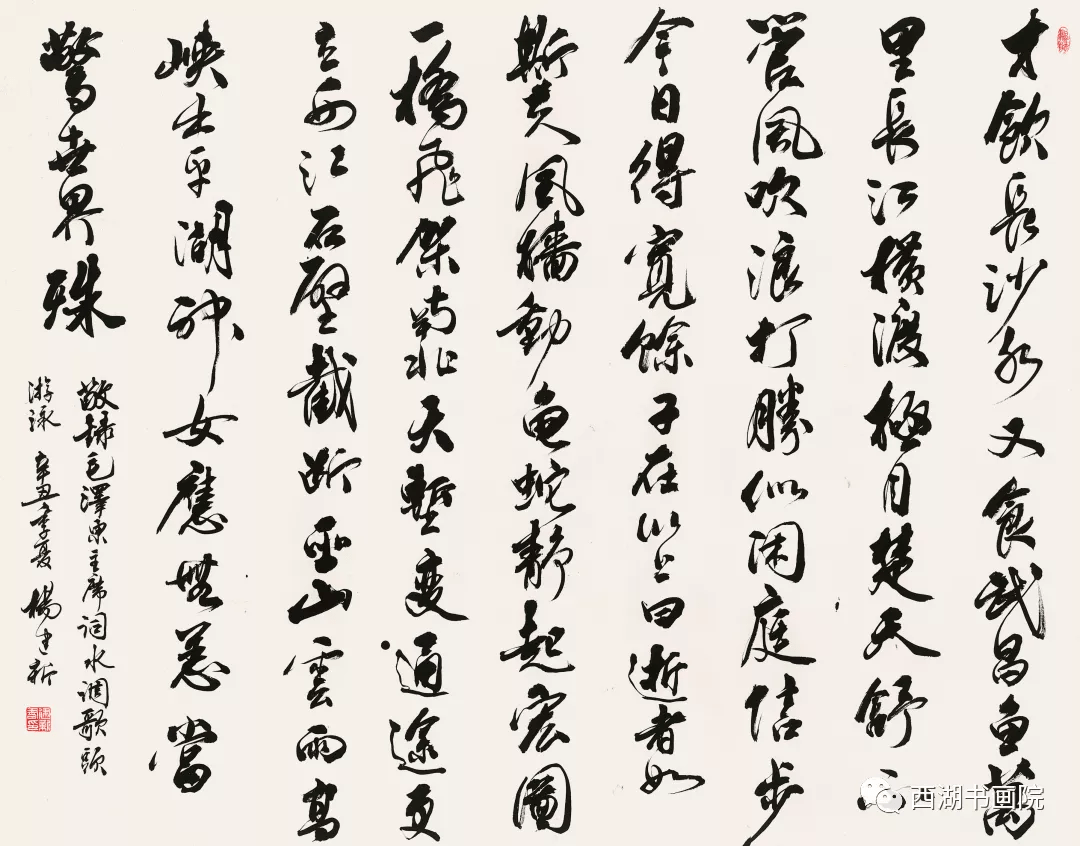 才飲長沙水又食武昌魚萬
里長江橫渡極目楚天舒不
管風吹浪打勝似閑庭信步
今日得寬餘子在川上曰逝者如
斯夫風檣動龜蛇靜起宏圖
一橋飛架南北天塹變通途更
立西江石壁截斷巫山雲雨高
峽出平湖神女應無恙當
驚世界殊
敬錄毛澤東主席詞水調歌頭
游泳 辛丑季夏 楊建新
西湖书画院